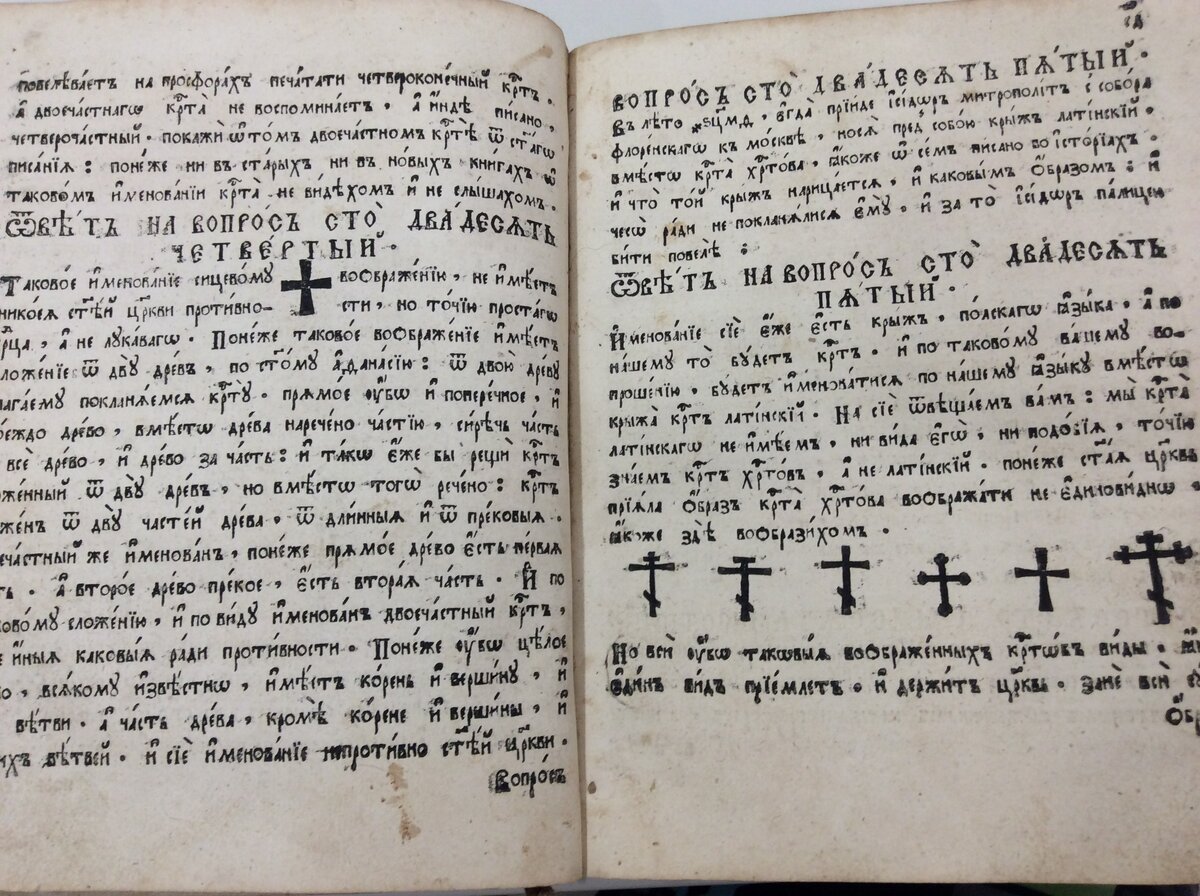 повелѣваетъ на просфора́хъ печа́тати четвероконе́чный кр҇тъ .
а҆ двоеча́стнагѡ кр҇та̀ не воспомина́етъ . а҆ и҆ндѣ̀ пи́сано ,
четвероча́стный . покажѝ ѡ҆ то́мъ двоеча́стномъ кр҇тѣ̀ ѿ ст҃а́гѡ
писа́нїѧ : поне́же ни въ ста́рыхъ ни въ но́выхъ кни́гахъ ѡ҆
тако́вомъ и҆менова́нїи кр҇та̀ не ви́дѣхомъ и҆ не слы́шахомъ .
ѾВѢ́ТЪ НА ВОПРО́СЪ СТО̀ ДВА́ДЕСѦТЬ
ЧЕТВЕ́РТЫЙ .
Таково́е и҆менова́нїе сицево́му воѡбраже́нїю , не и҆мѣ́етъ
никоеѧ̀ ст҃ѣ́й цр҃кви проти́вно-сти , но то́чїю проста́гѡ
рца , а҆ не лука́вагѡ . Поне́же таково́е воѡбраже́нїе и҆мѣ́етъ
ложе́нїе ѿ двꙋ̀ дре́въ , по ст҃о́мꙋ а҆ѳана́сїю : ѿ двою̀ дре́вꙋ
лага́емꙋ поклана́емсѧ кр҇тꙋ̀ . прѧмо́е ᲂу҆́бѡ и҆ попере́чное , и҆
ждо дре́во , вмѣ́стѡ дре́ва нарече́но ча́стїю , си́рѣчь ча́сть
всѐ дре́во , и҆ дре́во за ча́сть : и҆ та́кѡ є҆́же бы рещѝ кр҇тъ
же́нный ѿ двꙋ̀ дре́въ , но вмѣ́стѡ тогѡ̀ рече́но : кр҇тъ
же́нъ ѿ двꙋ̀ часте́й дре́ва , ѿ дли́нныѧ и҆ ѿ пре́ковыѧ .
еча́стный же и҆менова́нъ , поне́же прѧмо́е дре́во є҆́сть пе́рваѧ
ть . а҆ второ́е дре́во пре́кое , є҆́сть втора́ѧ ча́сть . И҆ по
ково́мꙋ сложе́нїю , и҆ по ви́дꙋ и҆менова́нъ двоеча́стный кр҇тъ ,
е и҆ны́ѧ каковы́ѧ ра́ди проти́вности . Поне́же ᲂу҆́бѡ цѣ́лое
о , всѧ́комꙋ и҆звѣ́стнѡ , и҆мѣ́етъ ко́рень и҆ верши́нꙋ , и҆
вѣ́тви . а҆ ча́сть дре́ва , кромѣ̀ ко́рене и҆ верши́ны , и҆
ихъ вѣ́твей . и҆ сїѐ и҆менова́нїе непроти́вно ст҃ѣ́й цр҃кви .
Вопро́съ
ВОПРО́СЪ СТО̀ ДВА́ДЕСѦТЬ ПѦ́ТЫЙ .
Въ лѣ́то ҂ѕц҃мд , є҆гда̀ прїи́де і҆сі́дѡръ митрополі́тъ с собо́ра
флоре́нскагѡ къ москвѣ̀ , носѧ̀ пред̾ собо́ю кры́жъ лати́нскїй
вмѣ́стѡ кр҇та̀ хр҇то́ва , ꙗ҆́коже ѡ҆ се́мъ пи́сано во і҆сто́рїахъ .
и҆ что̀ то́й кры́жъ нарица́етсѧ , и҆ каковы́мъ ѻ҆́бразомъ : и҆
чесѡ̀ ра́ди не поклана́лисѧ є҆мꙋ̀ , и҆ за то̀ і҆сі́дѡръ па́лицею
би́ти повелѣ̀ :
ѾВѢ́ТЪ НА ВОПРО́СЪ СТО̀ ДВА́ДЕСѦТЬ
ПѦ́ТЫЙ .
И҆менова́нїе сїѐ є҆́же є҆́сть кры́жъ , по́лскагѡ ꙗ҆зы́ка , а҆ по
на́шемꙋ то̀ бꙋ́детъ кр҇тъ . и҆ по тако́вомꙋ ва́шемꙋ во-
проше́нїю , бꙋ́детъ и҆менова́тисѧ по на́шемꙋ ꙗ҆зы́кꙋ вмѣ́стѡ
крыжа̀ кр҇тъ лати́нскїй . На сїѐ ѿвѣща́емъ ва́мъ : мы̀ кр҇та̀
лати́нскагѡ не и҆мѣ́емъ , ни ви́да є҆гѡ̀ , ни подо́бїѧ , то́чїю
зна́емъ кр҇тъ хр҇то́въ , а҆ не лати́нскїй . поне́же ст҃а́ѧ цр҃ковь
прїѧ́ла ѻ҆́бразъ кр҇та̀ хр҇то́ва воѡбража́ти не є҆динови́днѡ ,
ꙗ҆́коже здѣ̀ воѡбрази́хомъ .
Но всѝ ᲂу҆́бѡ таковы́ѧ воѡбраже́нныхъ кр҇тѡ́въ ви́ды .
є҆ди́нъ ви́дъ прїе́млетъ . и҆ держи́тъ цр҃ковь . занѐ всѝ
Ѻ҆бр